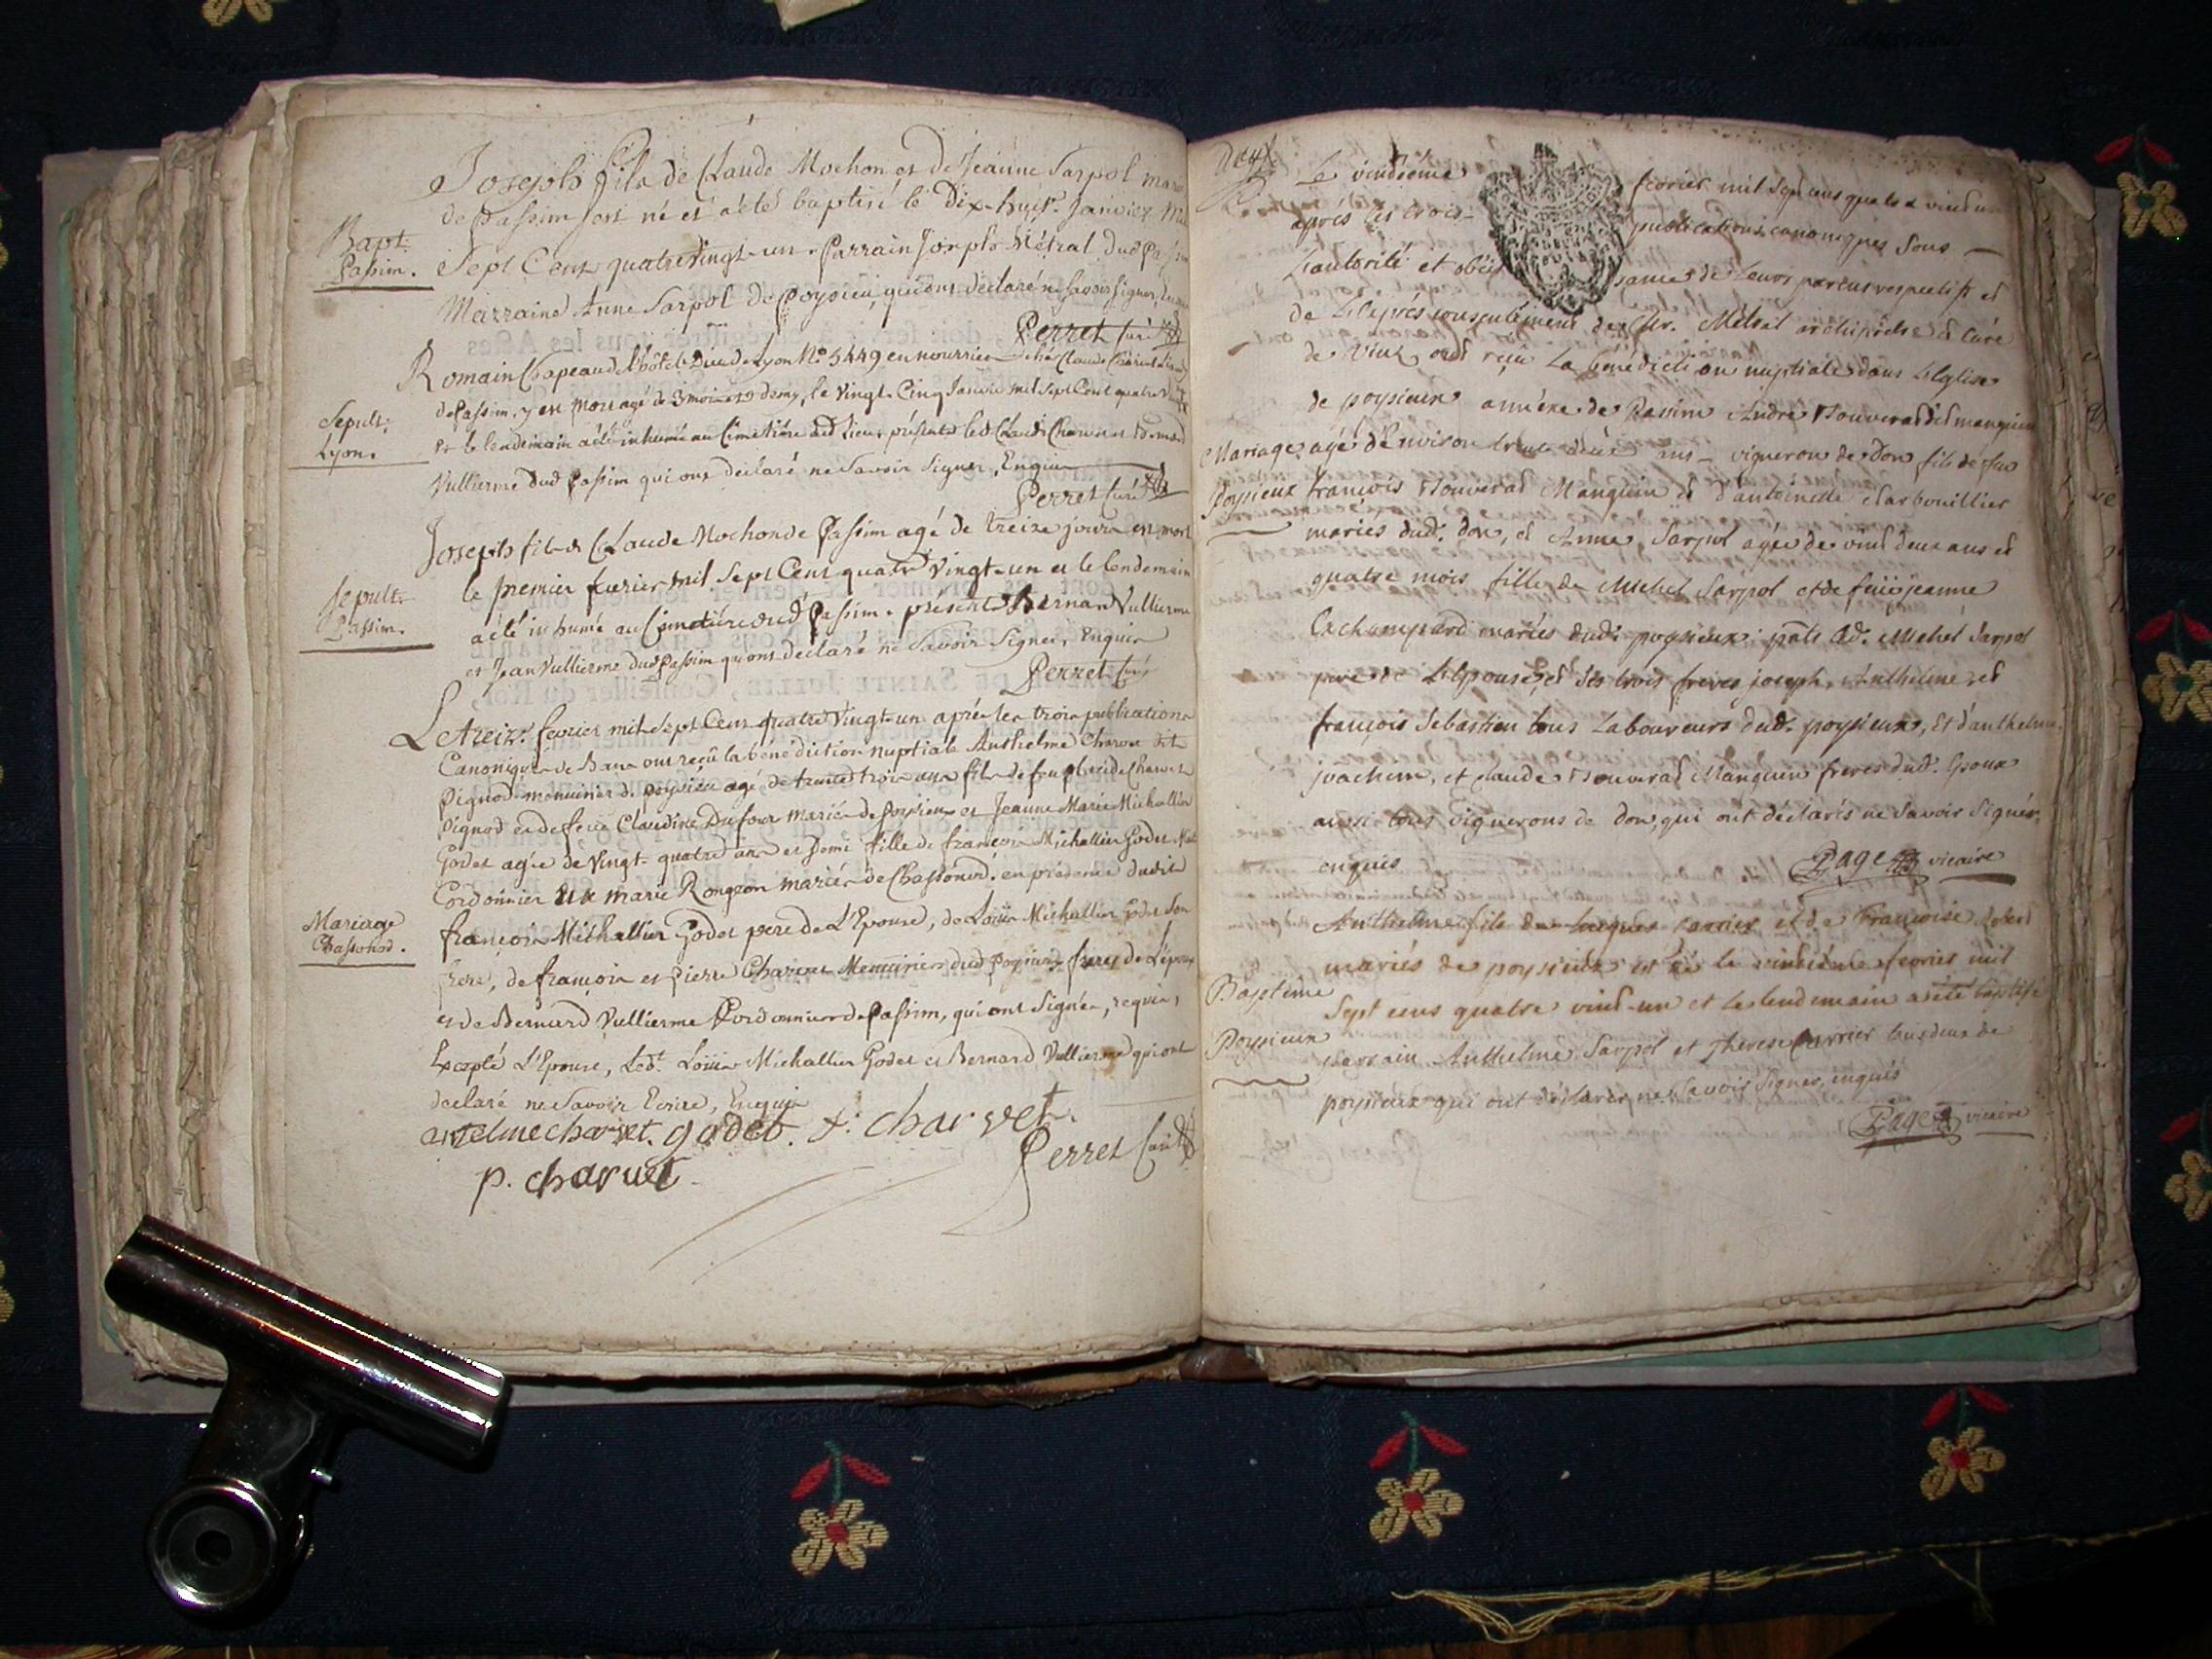 Joseph fils de Claude Mochon et de Jeanne Sarpol
de Passim est né et a été baptisé le Dix-huit Janvier
Bapt.
Passim.
Sept Cent quatre Vingt-un. Parrain Joseph Métral dud Passim
Marraine Anne Sarpol de Poysieu, qui ont déclaré ne Savoir Signer,
Perret Curé
Romain Chapeau de l'hôtel-Dieu de Lyon No 5449 en nourrice chés Claude
de Passim, y est mort agé de 3 mois et demy, le Vingt-Cinq Janvier mil Sept Cent quatre
Sepult.
Lyon.
et le lendemain a été inhumé au Cimetière dud Lieu, présents led Claude
Vullierme dud Passim qui ont déclaré ne Savoir Signer, Enquis
Perret Curé
Joseph fils de Claude Mochon de Passim agé de treize jours est mort
Sepult.
Passim.
le premier fevrier mil Sept Cent quatre Vingt-un et le lendemain
a été inhumé au Cimetière dud Passim. présents Bernard Vullierme
et Jean Vullierme dud Passim qui ont déclaré ne Savoir Signer, Enquis
Perret Curé
Le treize fevrier mil Sept Cent quatre Vingt-un après les trois publications
Canoniques de Bans ont reçû la bénédiction nuptiale Anthelme Charvet dit
Pignod menuisier de poysieu agé de trente trois ans fils de feu Charvet
Pignod et de feüe Claudine Dufour mariés de poysieux et Jeanne Marie Michallier
Godet agée de Vingt-quatre ans et demi fille de françois Michallier Godet
Cordonnier et de marie Rongeon mariés de Chassonod. en présence dudit
Mariage
Chassonod.
françois Michallier Godet pere de L'Epouse, de Loüis Michallier Godet Son
frere, de françois et pierre Charvet Menuisiers dud poysieux freres de L'époux
et de Bernard Vullierme Cordonnier de Passim, qui ont Signés, requis,
Excepté L'Epouse, Led.t Loüis Michallier Godet et Bernard Vullierme qui ont
déclaré ne Savoir Ecrire, Enquis
antelme charvet. godet. f: charvet.
Perret Curé
p. charuet.
Le vintieme fevrier mil Sept cens quatre vint un
après les trois publications canoniques Sous
L'autorité et obéissance de Leurs parens respectifs et
de L'exprès consentement de Mr. Métral archiprêtre et Curé
de Vieux, ont reçu La bénédiction nuptiale dans L'Eglise
de poysieux annéxe de Passim André Mouveras dit manguin
Mariage
agé d'Environ trente deux ans vigneron de Don fils de feu
Poysieux
françois Mouveras Manguin et d'antoinette
mariés dud. don, et Anne Sarpol agée de vint deux ans et
quatre mois fille de Michel Sarpol et de feüe jeanne
Exchampard mariés dud. poysieux: pnts Led. Michel Sarpol
pere de L'Epouse, et Ses trois freres joseph, Anthelme, et
françois Sebastien tous Laboureurs dud. poysieux, Et d'anthelme
joachim, et claude Mouveras Manguin freres dud. Epoux
aussi tous vignerons de don, qui ont déclarés ne Savoir Signér,
enquis
Page vicaire
Anthelme fils de Carrier et de Françoise Robert
mariés de poysieux est né le vintiéme fevrier mil
Baptême
Sept cens quatre vint-un et Le lendemain a été baptisé
Poysieux
parrain Anthelme Sarpol et Therese Carrier tous deux de
poysieux qui ont déclarés ne Savoir Signer, enquis
Page vicaire